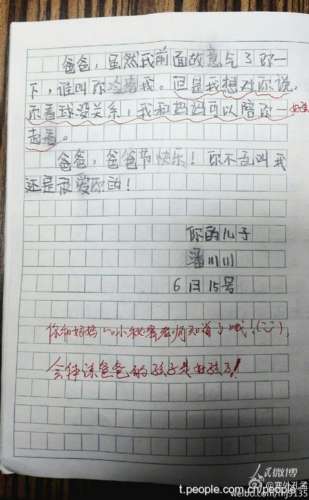 爸爸,虽然我前面故意气了你一
下,谁叫你冷落我。但是我想对你说,
你看球没关系,我和妈妈可以陪你一
起看。
爸爸,爸爸节快乐!你不
还是很爱你的!
你的儿子
潘川川
6日15号
你和妈妈的小秘密老师知道了哦!
会体谅爸爸的孩子是好孩子!
人民微博
t.people.com.cn/people
weibo.com/